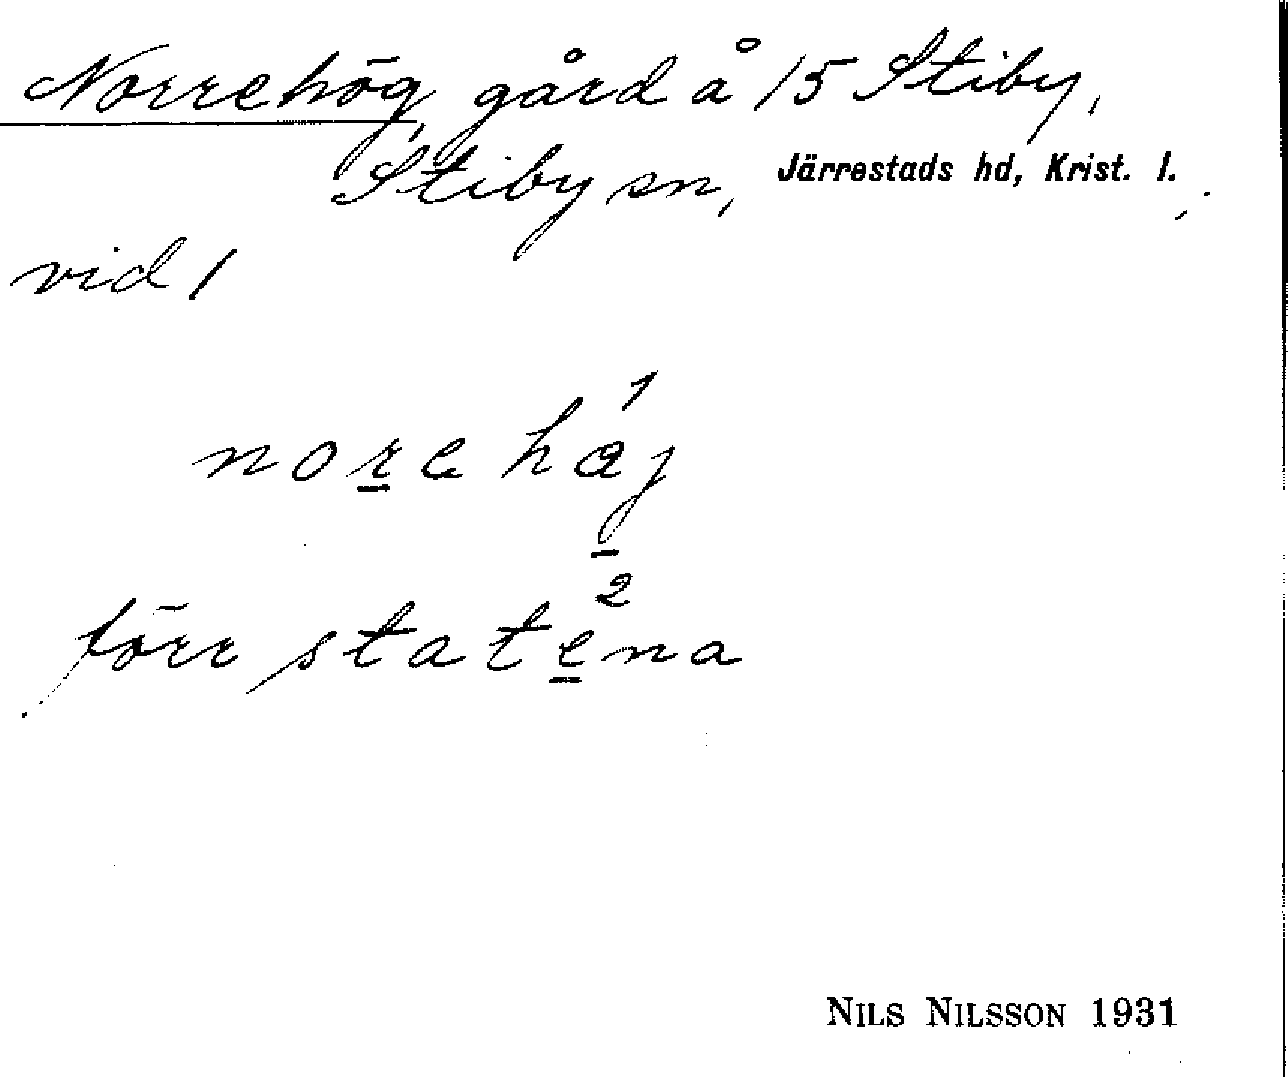 Norrehög, gård å 15 Stiby,
Stiby sn, Järrestads hd, Krist. l.
vid 1
1
norehaj
2
förr statena
NILS NILSSON 1931